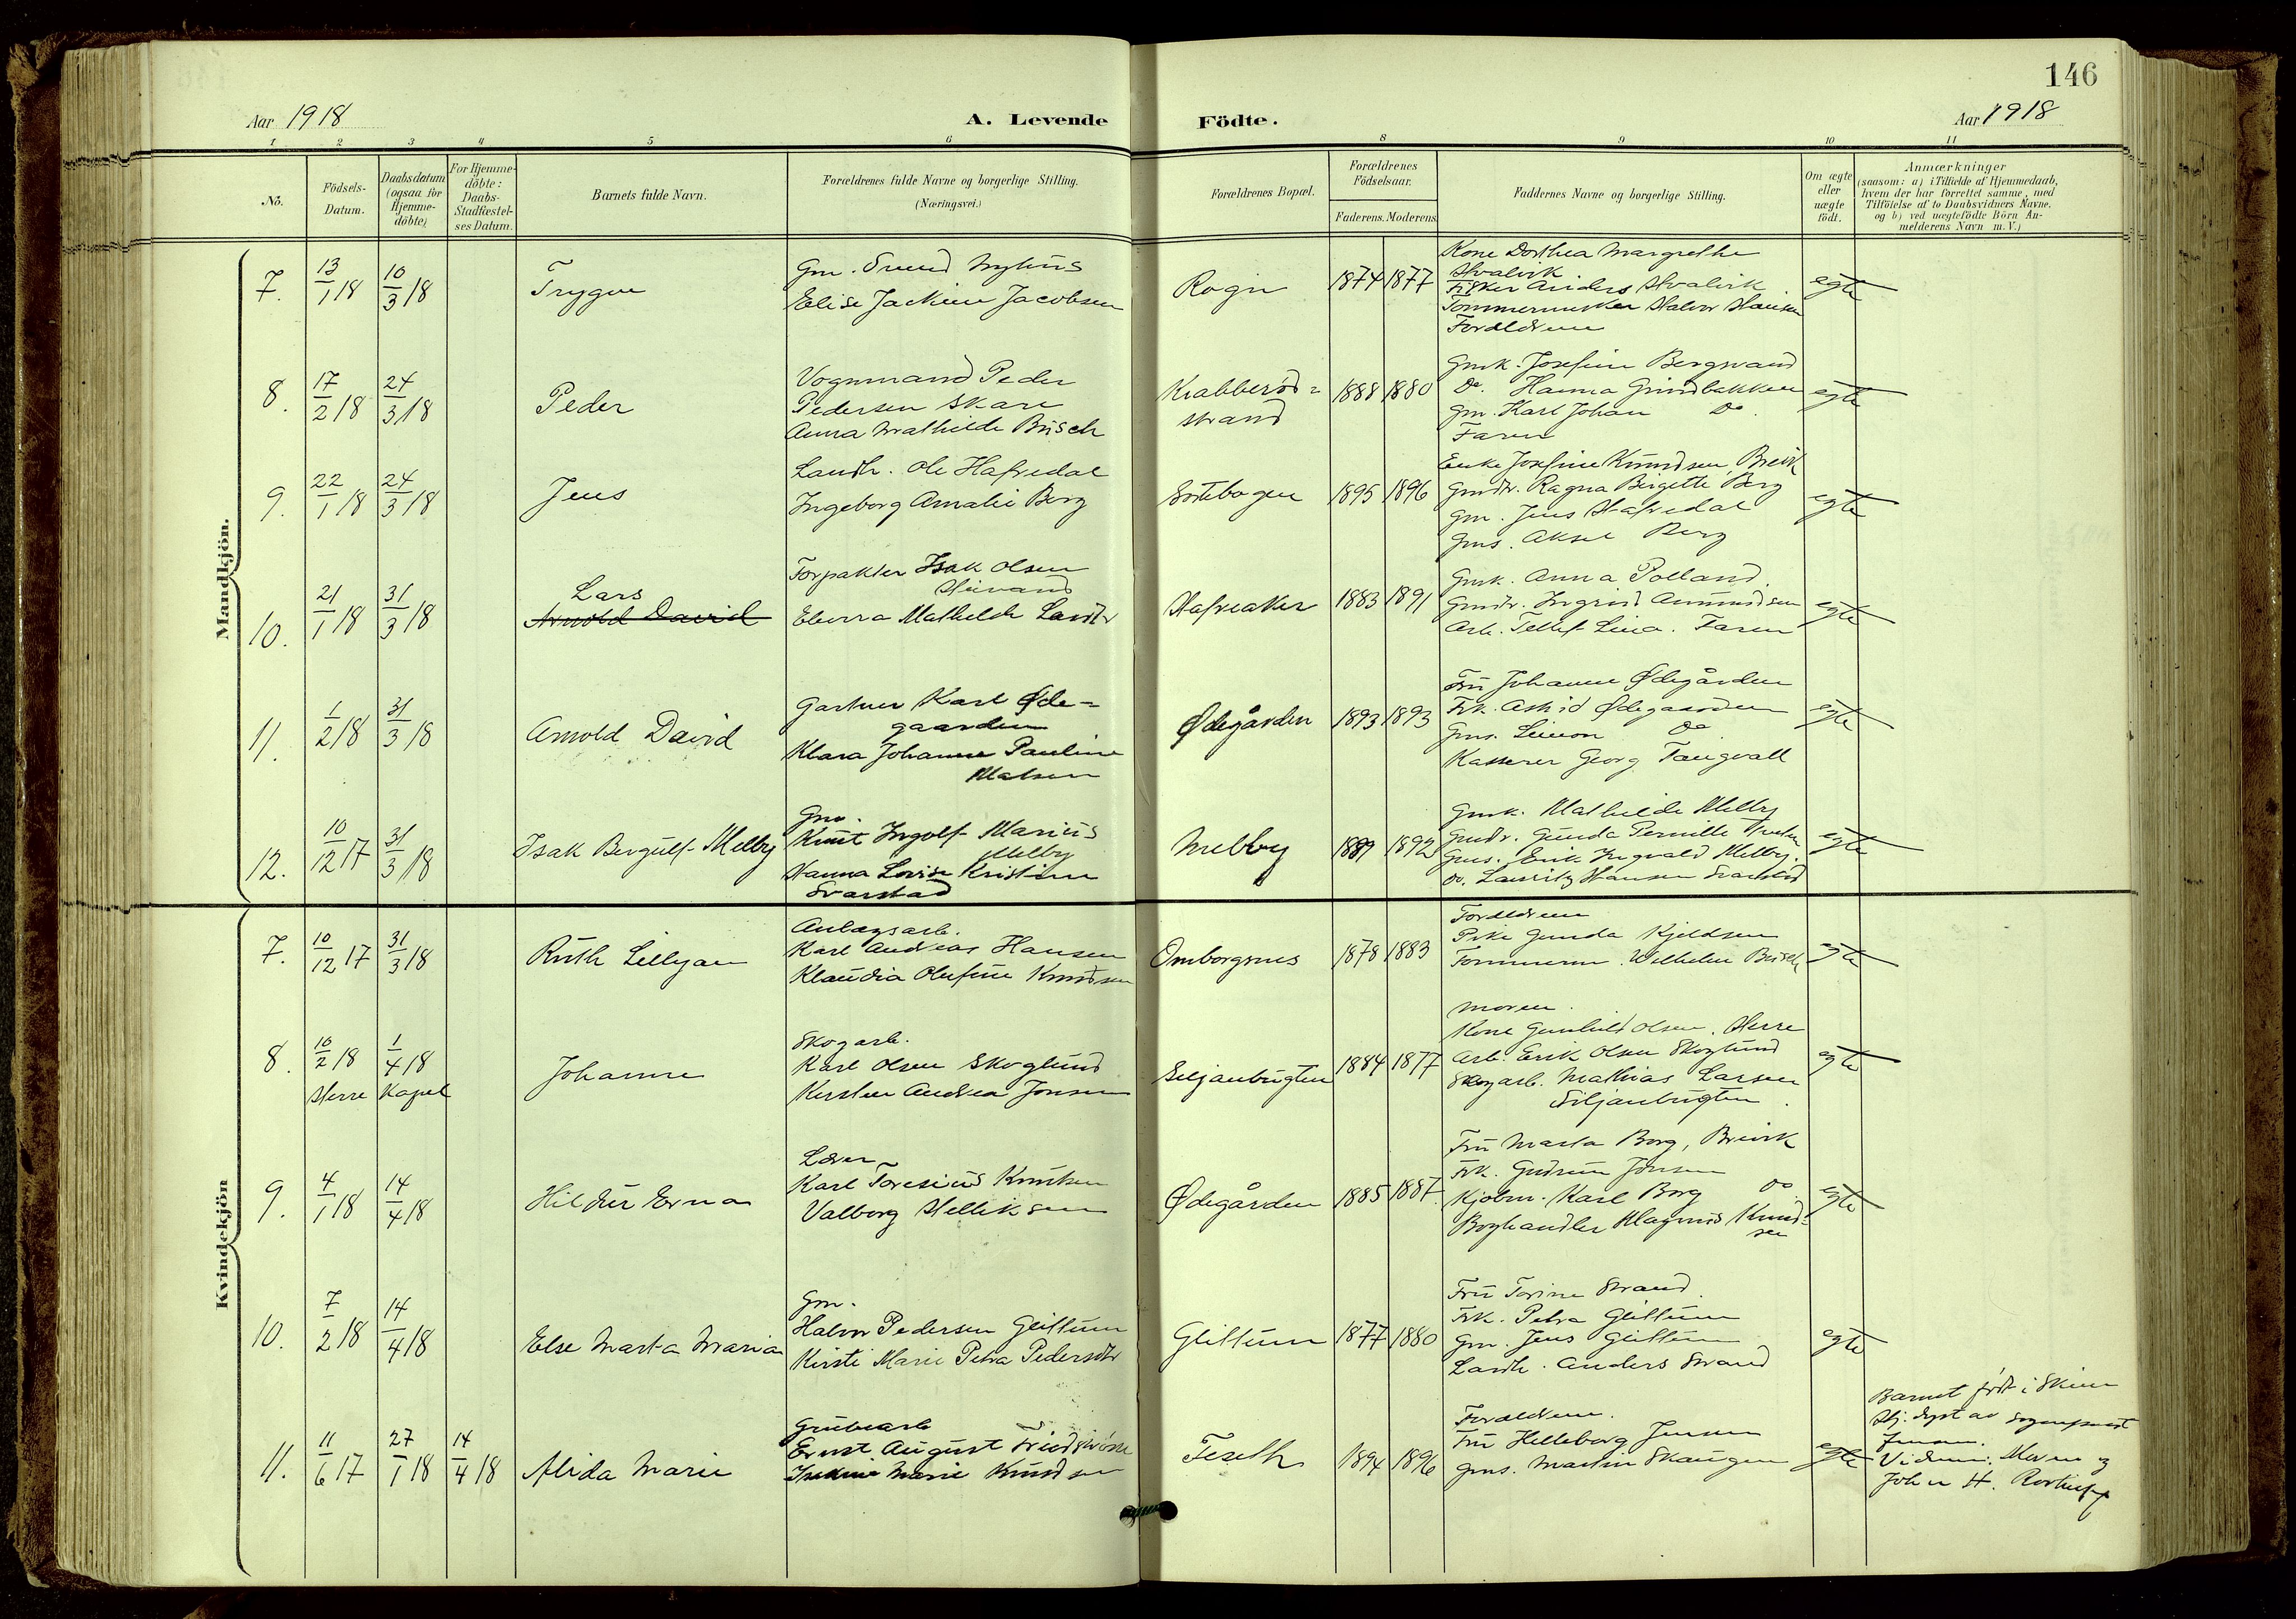 146
Aar 1918
A. Levende
Födte.
Aar 1918
1 2 3 4 5 6 8 9 10 11
No.
Födsels-
Datum.
Daabsdatum
(ogsaa for
Hjemme-
döbte)
For Hjemme-
döbte:
Daabs-
Stadfæstel-
ses Datum.
Barnets fulde Navn.
Forældrenes fulde Navne og borgerlige Stilling.
(Næringsvei.)
Forældrenes Bopæl.
Forældrenes
Födselsaar.
Faderens. Moderens.
Faddernes Navne og borgerlige Stilling.
Om ægte
eller
uægte
födt.
Anmærkninger
(saasom: a) i Tilfælde af Hjemmedaab,
hvem der har forrettet samme, med
Tilföielse af to Daabsvidners Navne,
og b) ved uægtefödte Börn An-
melderens Navn m. V.)
Mandkjön.
7.
13/1 18
10/3 18
Trygve
Gm. Svend
Elise Jacobsen
Rogn
1874
1877
Kone Dorthea Margrethe
Hvalvik
Fisker Anders Hvalvik
Tømmermester Halvor Hansen
Forældrene
egte
8.
17/2 18
24/3 18
Peder
Vognmand Peder
Pedersen Skare
Anna Mathilde Büsch
Krabberød=
strand
1888
1880
Gmk. Josefine Bergsvand
Do. Hanna Grindbakken
Gm. Karl Johan Do.
Faren
egte
9.
22/1 18
24/3 18
Jens
Landh. Ole Hafredal
Ingeborg Amalie Berg
Eostebogen
1895
1896
Enke Josefine Knudsen, Brevik
Gmdtr. Ragna Birgette Berg
Gm. Jens Hafredal
Gms. Aksel Berg
egte
10.
21/1 18
31/3 18
Lars
Arnold David
Forpakter Isak Olsen
Elvira Mathilde Larsdtr
Hafreaker
1883
1891
Gmk. Anna Polland.
Gmdtr. Ingrid Amundsen
Arb. Tellef Lina. Faren
egte
11.
1/2 18
31/3 18
Arnold David
Gartner Karl Øde=
gaarden
Klara Johanne Pauline
Matsen
Ødegården
1893
1893
Fru Johanne Ødegården
Frk. Astrid Ødegaarden
Gms. Simon Do.
Kasserer Georg Tangvall
egte
12.
10/12 17
31/3 18
Isak Bergulf Melby
Gm.
Knut Ingolf Marius
Melby
Hanna Lovise Kristine
Svarstad
Melby
1889
1892
Gmk. Mathilde Melby
Gmdtr. Gunda Pernille
Gms. Erik Ingvald Melby.
Do. Lauritz Hansen Svarstad
egte
Kvindekjön
7.
10/12 17
31/3 18
Ruth Lillyan
Anlægsarb.
Karl Andreas Hansen
Klaudia Olufine Knudsen
Omborgsnes
1878
1883
Forældrene
Pike Gunda Kjeldsen
Tømmerm. Wilhelm Büsch
egte
8.
10/2 18
1/4 18
Herre Kapel
Johanne
Skogarb.
Karl Olsen Skoglund
Kirsten Andrea Jonsen
Siljanbugten
1884
1877
Moren.
Kone Gunhild Olsen, Herre
Arb. Erik Olsen Skoglund
Skogarb. Mathias Larsen
Siljanbugten.
egte
9.
4/1 18
14/4 18
Hildur Erna
Lærer
Karl Toresius Knutsen
Valborg Helliksen
Ødegården
1885
1887
Fru Marta Borg, Brevik
Frk. Gudrun Jonsen Do
Kjøbm. Karl Borg
Boghandler Magnus Knud=
sen
egte
10.
7/2 18
14/4 18
Else Marta Maria
Gm.
Halvor Pedersen Glittum
Kirsti Marie Petra Pedersdtr
Glittum
1877
1880
Fru Torine Strand.
Frk. Petra Glittum
Gm. Jens Glittum
Landh. Anders Strand
egte
11.
11/6 17
27/1 18
14/4 18
Alida Marie
Grubearb
Ernst August
Marie Knudsen
Feseth
1894
1896
Forældrene.
Fru Helleborg Jensen
Gms. Martin Skaugen
egte
Barnet født i Skien
Hj. døpt av Sogneprest
Jensen.
Vidner: Moren og
John H.